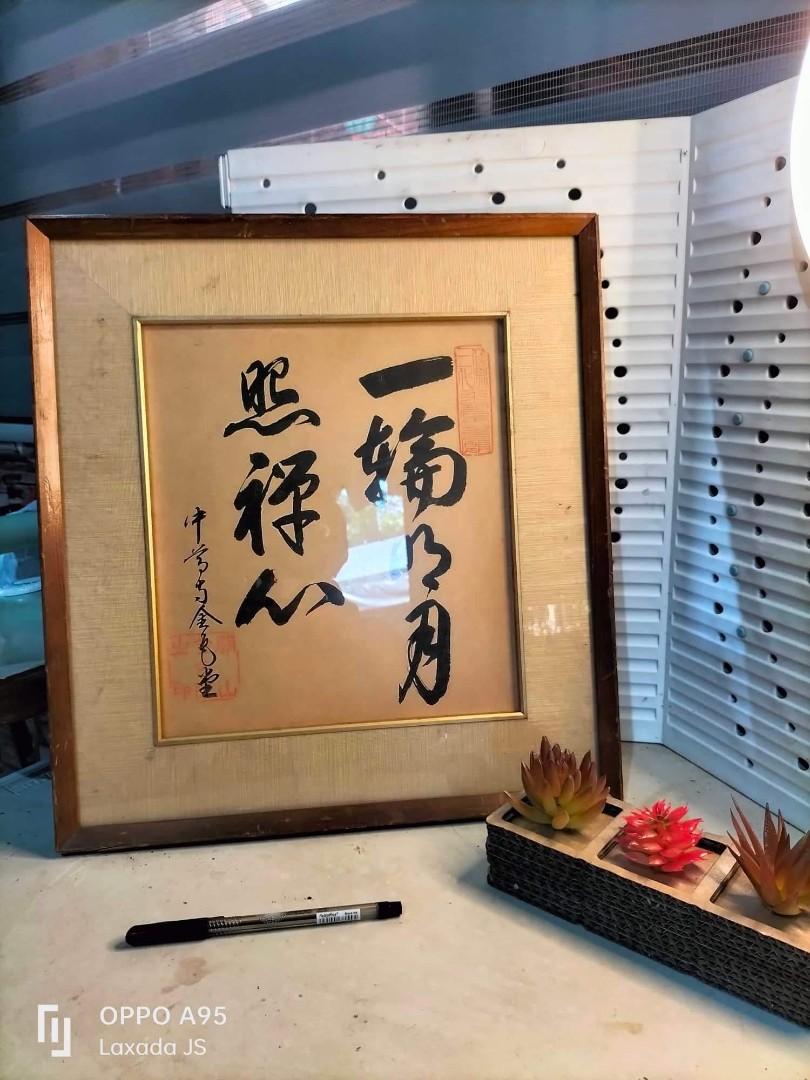 一輪明月
照禅心
中尊寺金色堂
OPPO A95
Laxada JS